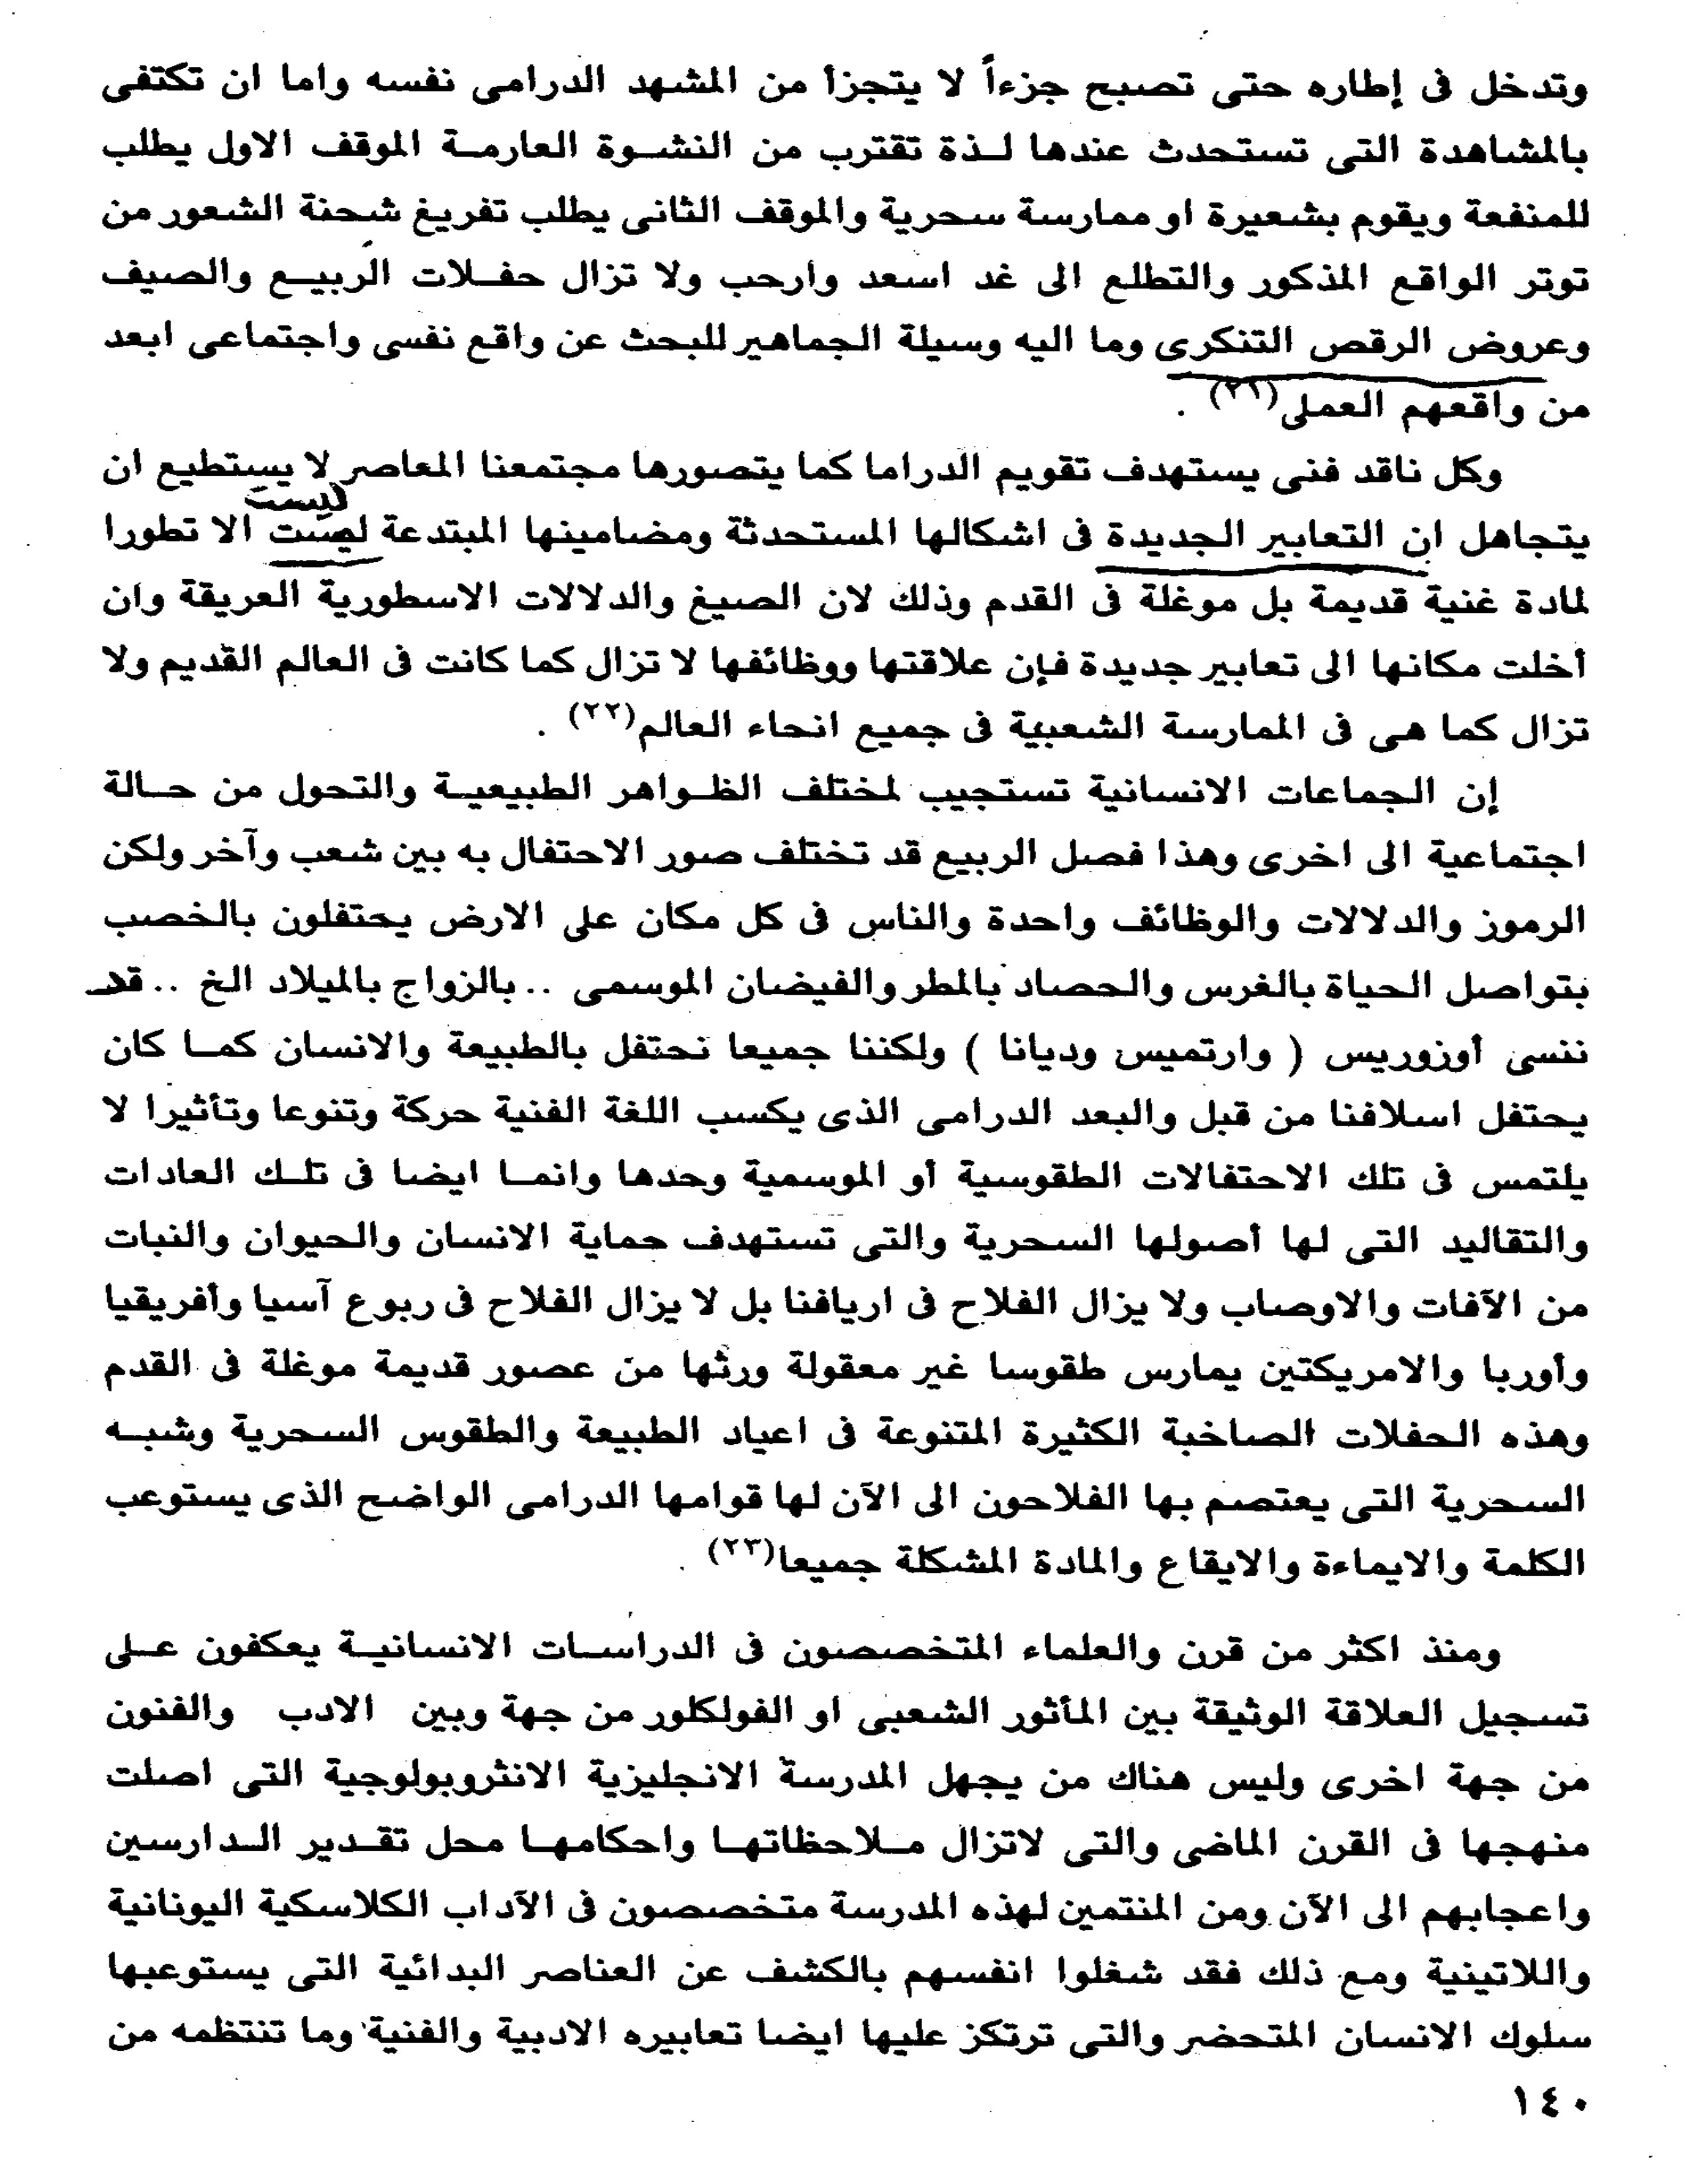 وتدخل فى إطاره حتى تصبح جزءاً لا يتجزأ من المشهد الدرامى نفسه واما ان تكتفى
بالمشاهدة التى تستحدث عندها لذة تقترب من النشوة العارمة الموقف الاول يطلب
للمنفعة ويقوم بشعيرة او ممارسة سحرية والموقف الثانى يطلب تفريغ شحنة الشعور من
توتر الواقع المذكور والتطلع الى غد اسعد وارحب ولا تزال حفلات الربيع والصيف
وعروض الرقص التنكرى وما اليه وسيلة الجماهير للبحث عن واقع نفسى واجتماعى ابعد
من واقعهم العملى(٢١) .
وكل ناقد فنى يستهدف تقويم الدراما كما يتصورها مجتمعنا المعاصر لا يستطيع ان
ليست
يتجاهل ان التعابير الجديدة فى اشكالها المستحدثة ومضامينها المبتدعة لصت الا تطورا
لمادة غنية قديمة بل موغلة فى القدم وذلك لان الصيغ والدلالات الاسطورية العريقة وان
أخلت مكانها الى تعابير جديدة فإن علاقتها ووظائفها لا تزال كما كانت فى العالم القديم ولا
تزال كما هى فى الممارسة الشعبية فى جميع انحاء العالم(٢٢) .
إن الجماعات الانسانية تستجيب لمختلف الظواهر الطبيعية والتحول من حالة
اجتماعية الى اخرى وهذا فصل الربيع قد تختلف صور الاحتفال به بين شعب وآخر ولكن
الرموز والدلالات والوظائف واحدة والناس فى كل مكان على الارض يحتفلون بالخصب
بتواصل الحياة بالغرس والحصاد بالمطر والفيضان الموسمى .. بالزواج بالميلاد الخ .. قد
ننسى أوزوريس ( وارتميس وديانا ) ولكننا جميعا نحتفل بالطبيعة والانسان كما كان
يحتفل اسلافنا من قبل والبعد الدرامى الذى يكسب اللغة الفنية حركة وتنوعا وتأثيرا لا
يلتمس فى تلك الاحتفالات الطقوسية أو الموسمية وحدها وانما ايضا فى تلك العادات
والتقاليد التى لها أصولها السحرية والتى تستهدف حماية الانسان والحيوان والنبات
من الآفات والاوصاب ولا يزال الفلاح فى اريافنا بل لا يزال الفلاح فى ربوع آسيا وأفريقيا
وأوربا والامريكتين يمارس طقوسا غير معقولة ورثها من عصور قديمة موغلة فى القدم
وهذه الحفلات الصاخبة الكثيرة المتنوعة فى اعياد الطبيعة والطقوس السحرية وشبه
السحرية التى يعتصم بها الفلاحون الى الآن لها قوامها الدرامى الواضح الذى يستوعب
الكلمة والايماءة والايقاع والمادة المشكلة جميعا(٢٣) .
ومنذ اكثر من قرن والعلماء المتخصصون فى الدراسات الانسانية يعكفون على
تسجيل العلاقة الوثيقة بين المأثور الشعبى او الفولكلور من جهة وبين الادب والفنون
من جهة اخرى وليس هناك من يجهل المدرسة الانجليزية الانثروبولوجية التى اصلت
منهجها فى القرن الماضى والتى لاتزال ملاحظاتها واحكامها محل تقدير الدارسين
واعجابهم الى الآن ومن المنتمين لهذه المدرسة متخصصون فى الآداب الكلاسكية اليونانية
واللاتينية ومع ذلك فقد شغلوا انفسهم بالكشف عن العناصر البدائية التى يستوعبها
سلوك الانسان المتحضر والتى ترتكز عليها ايضا تعابيره الادبية والفنية وما تنتظمه من
١٤٠